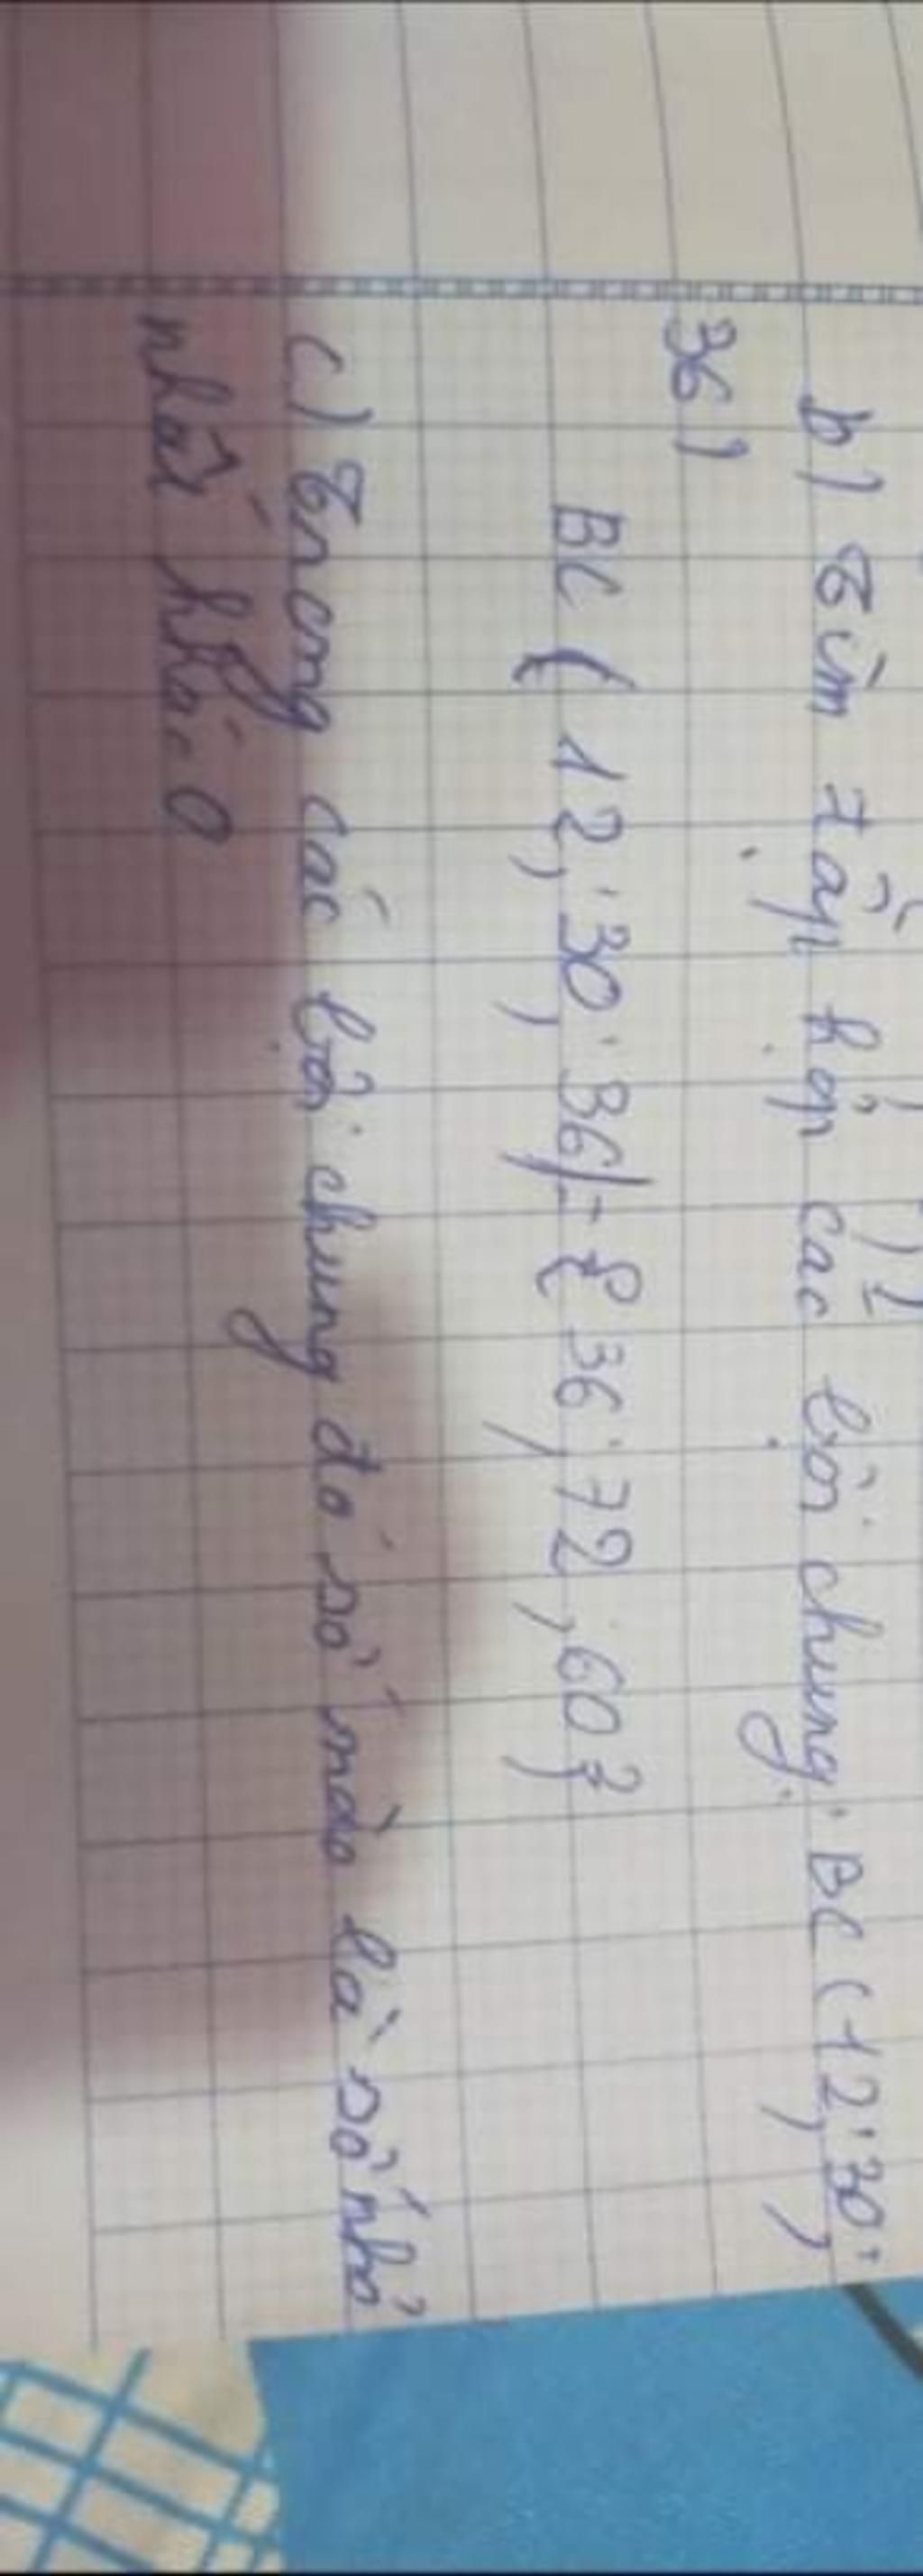 b) Tìm tập hợp các bội chung: BC (12; 30;
36)
BC ( 12; 30; 36) = { 36; 72; 60}
c) Trong các bội chung đó số nào là số nhỏ
nhất khác 0